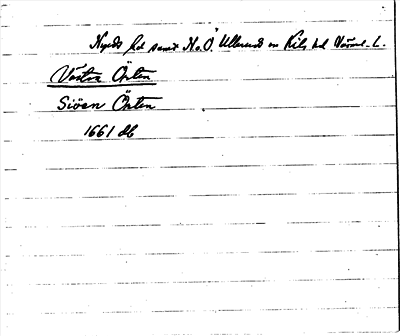 Nyeds hd samt N. o. Ö. Ullerud en Kils hd Värml. L.
Västra Örten
Siöen Örten
1661 db